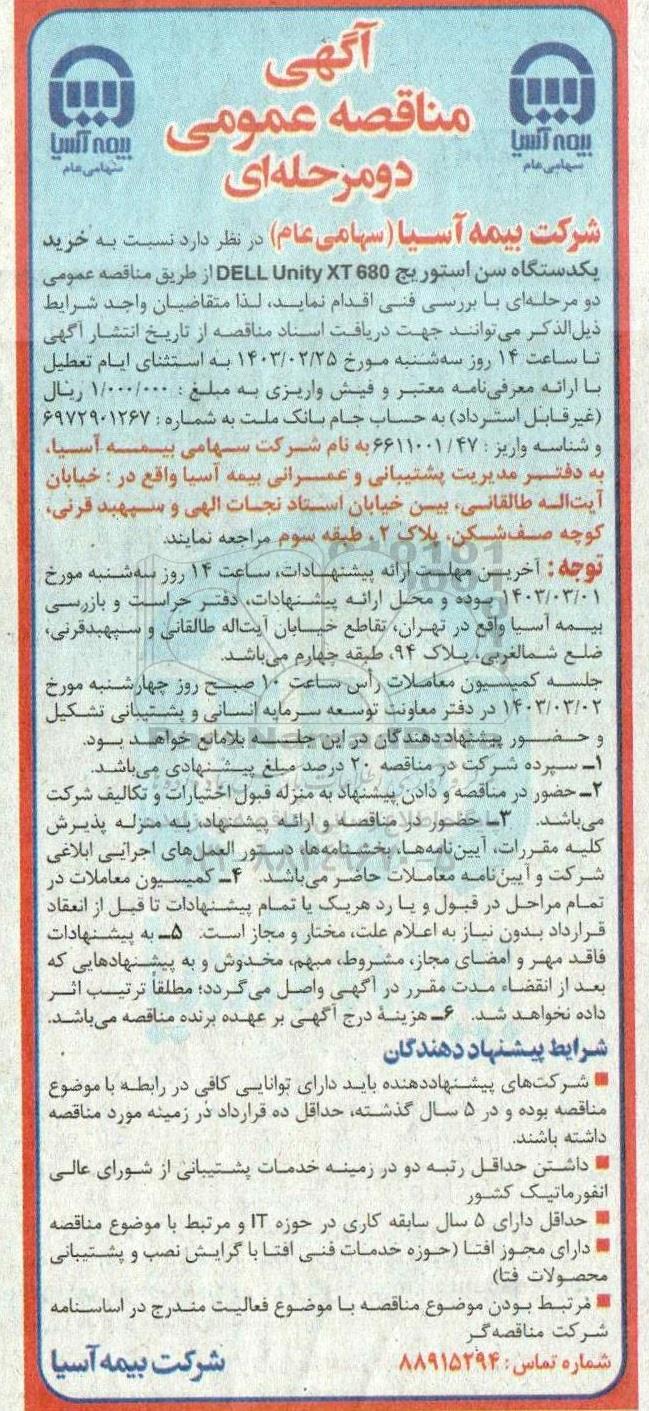 بیمه آسیا
سهامی عام
بیمه آسیا
سهامی عام
آگهی
مناقصه عمومی
دومرحله‌ای
شرکت بیمه آسیا (سهامی عام) در نظر دارد نسبت به خرید
یکدستگاه سن استوریج DELL Unity XT 680 از طریق مناقصه عمومی
دو مرحله‌ای با بررسی فنی اقدام نماید، لذا متقاضیان واجد شرایط
ذیل‌الذکر می‌توانند جهت دریافت اسناد مناقصه از تاریخ انتشار آگهی
تا ساعت ۱۴ روز سه‌شنبه مورخ ۱۴۰۳/۰۲/۲۵ به استثنای ایام تعطیل
با ارائه معرفی‌نامه معتبر و فیش واریزی به مبلغ : ۱/۰۰۰/۰۰۰ ریال
(غیرقابل استرداد) به حساب جام بانک ملت به شماره : ۶۹۷۲۹۰۱۲۶۷
و شناسه واریز : ۶۶۱۱۰۰۱/۴۷ به نام شرکت سهامی بیمه آسیا،
به دفتر مدیریت پشتیبانی و عمرانی بیمه آسیا واقع در : خیابان
آیت‌اله طالقانی، بین خیابان استاد نجات الهی و سپهبد قرنی،
کوچه صف‌شکن، پلاک ۲، طبقه سوم مراجعه نمایند.
توجه : آخرین مهلت ارائه پیشنهادات، ساعت ۱۴ روز سه‌شنبه مورخ
۱۴۰۳/۰۳/۰۱ بوده و محل ارائه پیشنهادات، دفتر حراست و بازرسی
بیمه آسیا واقع در تهران، تقاطع خیابان آیت‌اله طالقانی و سپهبدقرنی،
ضلع شمالغربی، پلاک ۹۴، طبقه چهارم می‌باشد.
جلسه کمیسیون معاملات رأس ساعت ۱۰ صبح روز چهارشنبه مورخ
۱۴۰۳/۰۳/۰۲ در دفتر معاونت توسعه سرمایه انسانی و پشتیبانی تشکیل
و حضور پیشنهاد دهندگان در این جلسه بلامانع خواهد بود.
۱ـ سپرده شرکت در مناقصه ۲۰ درصد مبلغ پیشنهادی می‌باشد.
۲ـ حضور در مناقصه و دادن پیشنهاد به منزله قبول اختیارات و تکالیف شرکت
می‌باشد. ۳ـ حضور در مناقصه و ارائه پیشنهاد، به منزله پذیرش
کلیه مقررات، آیین‌نامه‌ها، بخشنامه‌ها، دستور العمل‌های اجرایی ابلاغی
شرکت و آیین‌نامه معاملات حاضر می‌باشد. ۴ـ کمیسیون معاملات در
تمام مراحل در قبول و یا رد هریک یا تمام پیشنهادات تا قبل از انعقاد
قرارداد بدون نیاز به اعلام علت، مختار و مجاز است. ۵ـ به پیشنهادات
فاقد مهر و امضای مجاز، مشروط، مبهم، مخدوش و به پیشنهادهایی که
بعد از انقضاء مدت مقرر در آگهی واصل می‌گردد؛ مطلقاً ترتیب اثر
داده نخواهد شد. ۶ـ هزینهٔ درج آگهی بر عهده برنده مناقصه می‌باشد.
شرایط پیشنهاد دهندگان
■ شرکت‌های پیشنهاددهنده باید دارای توانایی کافی در رابطه با موضوع
مناقصه بوده و در ۵ سال گذشته، حداقل ده قرارداد در زمینه مورد مناقصه
داشته باشند.
■ داشتن حداقل رتبه دو در زمینه خدمات پشتیبانی از شورای عالی
انفورماتیک کشور
■ حداقل دارای ۵ سال سابقه کاری در حوزه IT و مرتبط با موضوع مناقصه
■ دارای مجوز افتا (حوزه خدمات فنی افتا با گرایش نصب و پشتیبانی
محصولات فتا)
■ مرتبط بودن موضوع مناقصه با موضوع فعالیت مندرج در اساسنامه
شرکت مناقصه‌گر
شماره تماس : ۸۸۹۱۵۲۹۴
شرکت بیمه آسیا